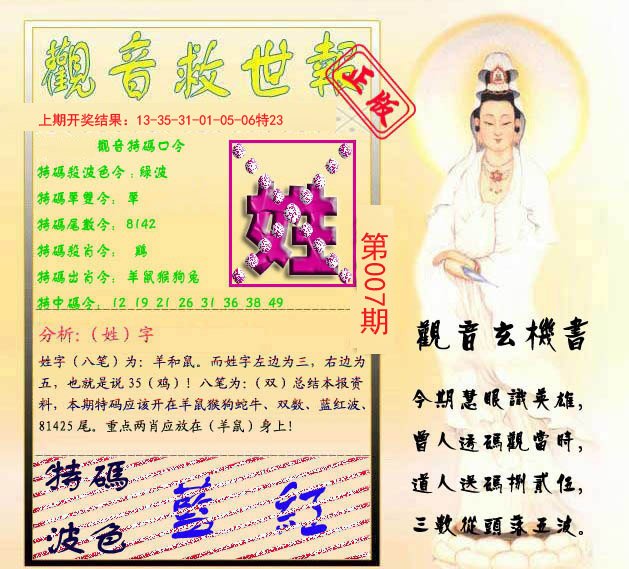 觀音救世報
正版
上期开奖结果：13-35-31-01-05-06特23
觀音特碼口令
特碼殺波色令：綠波
特碼單雙令： 單
特碼尾數令： 8142
特碼殺肖令： 鷄
特碼出肖令： 羊鼠猴狗兔
特中碼令： 12 19 21 26 31 36 38 49
姓
第007期
分析:（姓）字
姓字（八笔）为：羊和鼠。而姓字左边为三，右边为
五，也就是说 35（鸡）！八笔为：（双）总结本报资
料，本期特码应该开在羊鼠猴狗蛇牛、双数、蓝红波、
81425 尾。重点两肖应放在（羊鼠）身上！
特碼
波色
藍 紅
觀音玄機書
今期慧眼識英雄，
曾人透碼觀當時，
道人送碼捌貳伍，
三數從頭落五波。